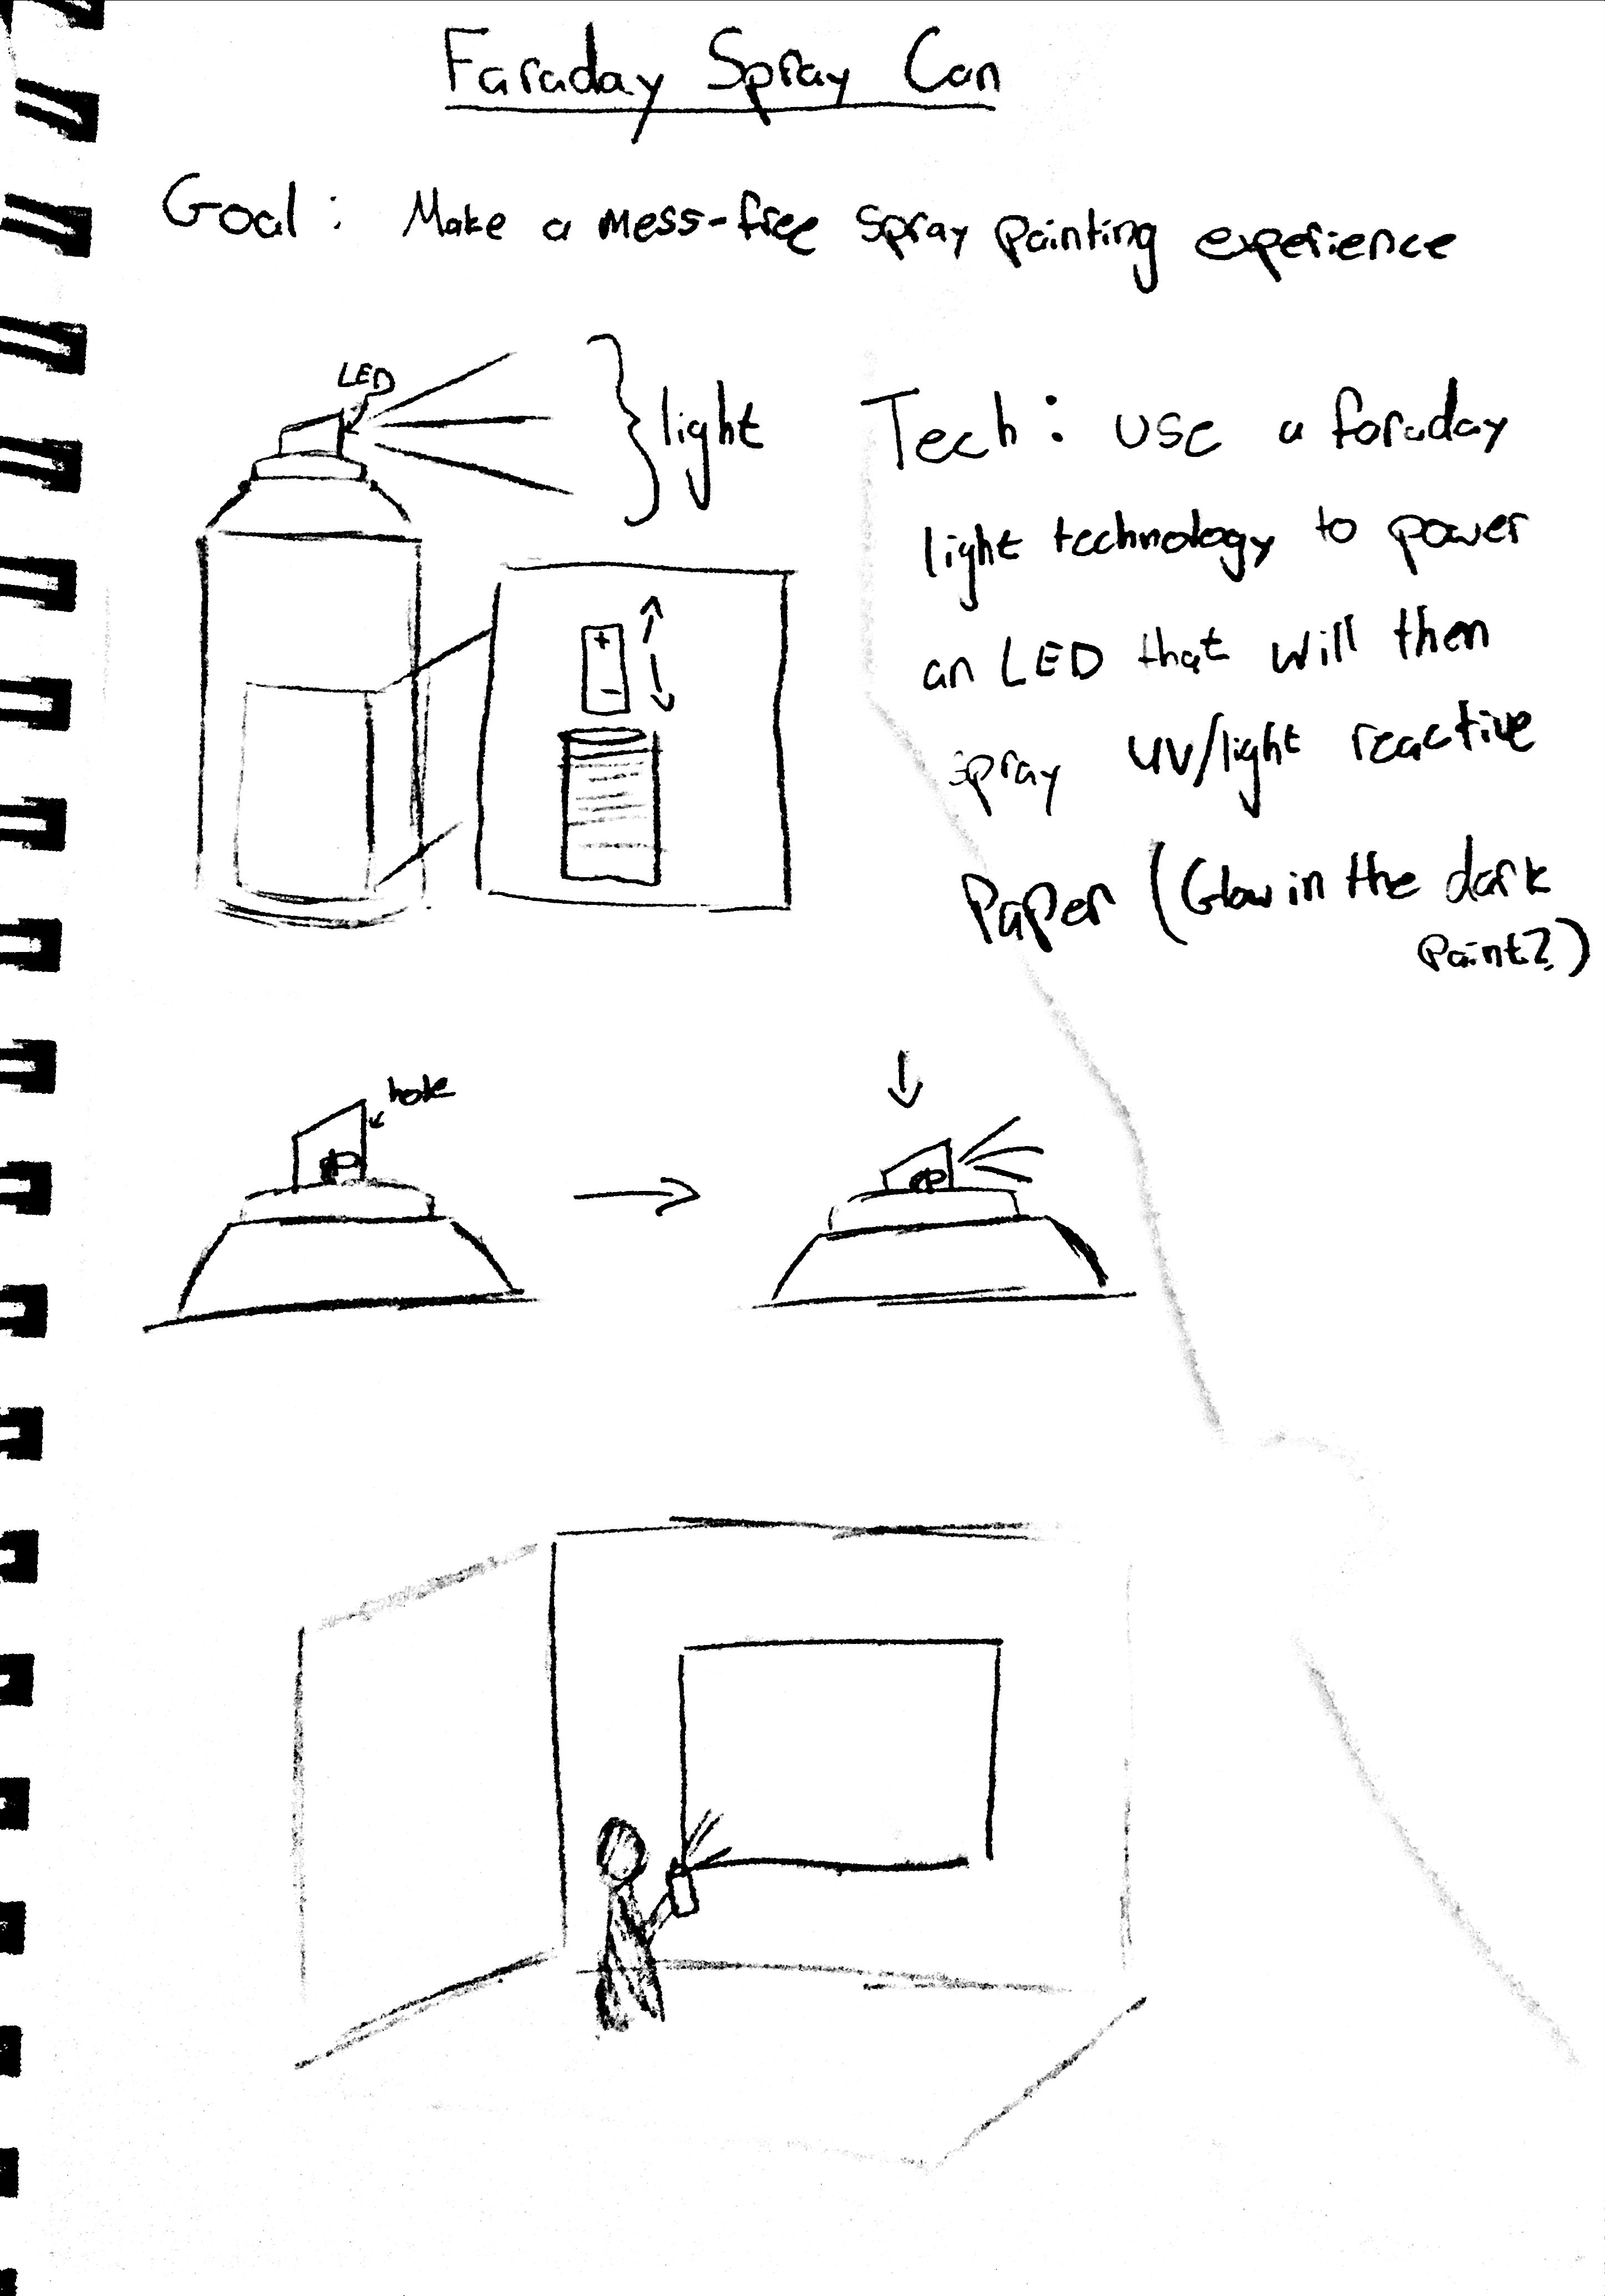 Faraday Spray Can
Goal: Make a mess-free spray painting experience
LED
light
Tech: use a faraday
light technology to power
an LED that will then
spray UV/light reactive
Paper (Glow in the dark
paint?)
+
-
hole